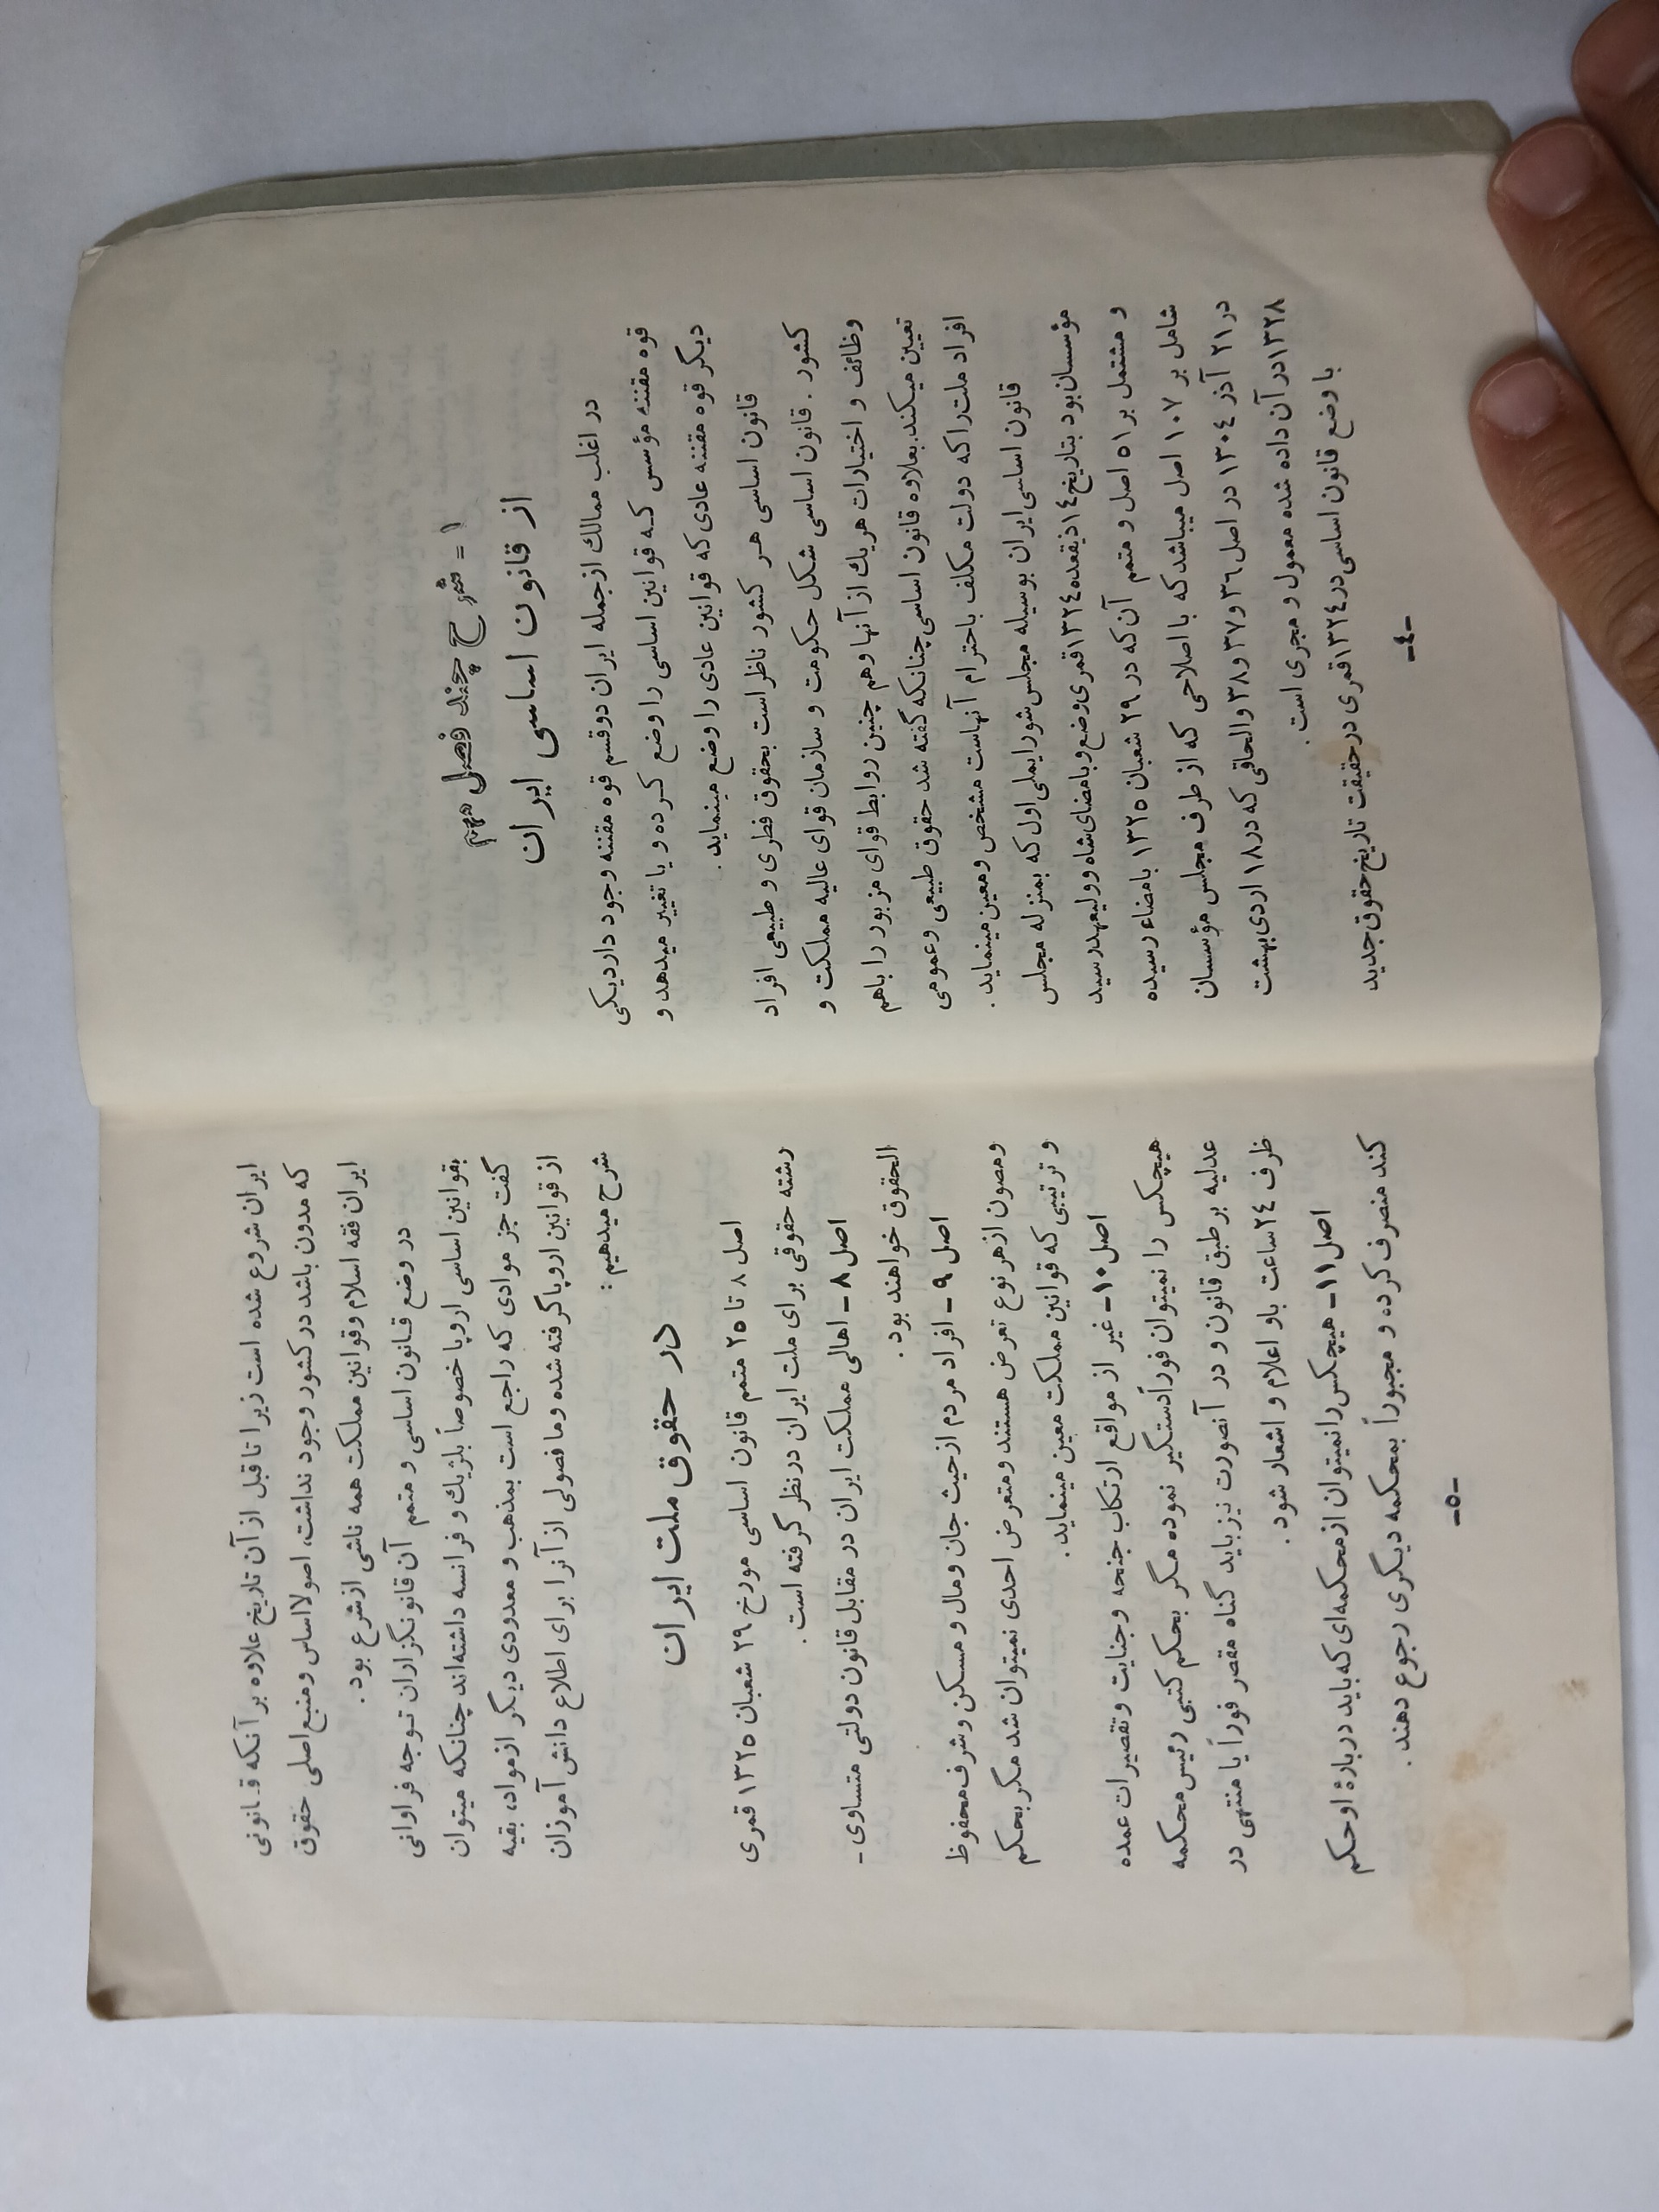 ۱ = شرح چند فصل مهم
از قانون اساسی ایران
در اغلب ممالك ازجمله ایران دوقسم قوه مقننه وجود داردیکی
قوه مقننه مؤسس که قوانین اساسی را وضع کرده و یا تغییر میدهد و
دیگر قوه مقننه عادی که قوانین عادی را وضع مینماید.
قانون اساسی هر کشور ناظر است بحقوق فطری و طبیعی افراد
کشور. قانون اساسی شکل حکومت و سازمان قوای عالیه مملکت و
وظائف و اختیارات هریك از آنها و هم چنین روابط قوای مزبور را باهم
تعیین میکند. بعلاوه قانون اساسی چنانکه گفته شد حقوق طبیعی وعمومی
افراد ملت را که دولت مکلف باحترام آنهاست مشخص ومعین مینماید.
قانون اساسی ایران بوسیله مجلس شورایملی اول که بمنزله مجلس
مؤسسان بود بتاریخ ۱٤ ذیقعده ۱۳۲٤ قمری وضع و بامضای شاه وولیعهد رسید
و مشتمل بر ۵۱ اصل و متمم آن که در ۲۹ شعبان ۱۳۲۵ بامضاء رسیده
شامل بر ۱۰۷ اصل میباشد که با اصلاحی که از طرف مجلس مؤسسان
در ۲۱ آذر ۱۳۰٤ در اصل ۳٦ و ۳۷ و ۳۸ والحاقی که در ۱۸ اردی بهشت
۱۳۲۸ در آن داده شده معمول و مجری است.
با وضع قانون اساسی در ۱۳۲٤ قمری در حقیقت تاریخ حقوق جدید
-٤-
ایران شروع شده است زیرا تا قبل از آن تاریخ علاوه بر آنکه قانونی
که مدون باشد در کشور وجود نداشت، اصولا اساس ومنبع اصلی حقوق
ایران فقه اسلام وقوانین مملکت همه ناشی ازشرع بود.
در وضع قانون اساسی و متمم آن قانونگزاران توجه فراوانی
بقوانین اساسی اروپا خصوصاً بلژیك و فرانسه داشته‌اند چنانکه میتوان
گفت جز موادی که راجع است بمذهب و معدودی دیگر ازمواد، بقیه
از قوانین اروپا گرفته شده وما فصولی از آنرا برای اطلاع دانش آموزان
شرح میدهیم:
در حقوق ملت ایران
اصل ۸ تا ۲۵ متمم قانون اساسی مورخ ۲۹ شعبان ۱۳۲۵ قمری
رشته حقوقی برای ملت ایران درنظر گرفته است.
اصل ۸ - اهالی مملکت ایران در مقابل قانون دولتی متساوی-
الحقوق خواهند بود.
اصل ۹ - افراد مردم ازحیث جان ومال و مسکن وشرف محفوظ
ومصون ازهر نوع تعرض هستند ومتعرض احدی نمیتوان شد مگر بحکم
و ترتیبی که قوانین مملکت معین مینماید.
اصل ۱۰ - غیر از مواقع ارتکاب جنحه وجنایت وتقصیرات عمده
هیچکس را نمیتوان فوراًدستگیر نموده مگر بحکم کتبی رئیس محکمه
عدلیه بر طبق قانون و در آنصورت نیز باید گناه مقصر فوراً یا منتهی در
ظرف ۲٤ ساعت باو اعلام و اشعار شود.
اصل ۱۱ - هیچکس رانمیتوان ازمحکمه‌ای که باید دربارهٔ اوحکم
کند منصرف کرده و مجبوراً بمحکمه دیگری رجوع دهند.
-۵-